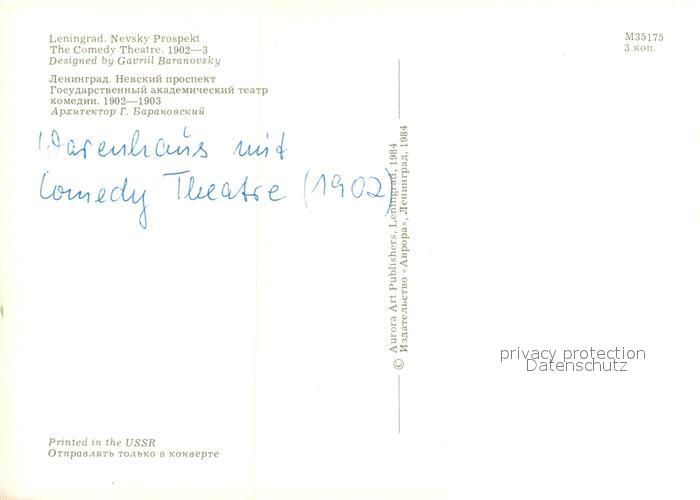 Leningrad. Nevsky Prospekt
The Comedy Theatre. 1902—3
Designed by Gavriil Baranovsky
Ленинград. Невский проспект
Государственный академический театр
комедии. 1902—1903
Архитектор Г. Барановский
Warenhaus mit
Comedy Theatre (1902)
Printed in the USSR
Отправлять только в конверте
© Aurora Art Publishers, Leningrad, 1984
Издательство «Аврора», Ленинград, 1984
М35175
3 коп.
privacy protection
Datenschutz